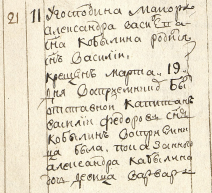 21 11 Угосподина Маиора
александра васильева
сна Кобылина родилс
снъ Василіи,
крещенъ марта 19
дня Воспрiемникъ бы
отставной капитанъ
василiи федоровъ снъ
кобылинъ Воспрiемни
ца была, пока занного
александра кобылина
дочь девица варвар